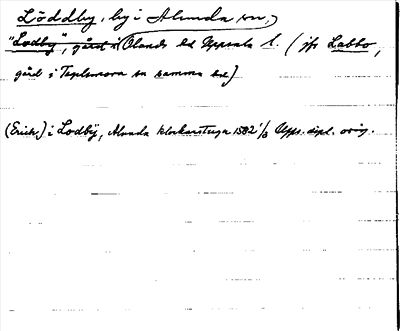 Löddby, by i Alunda sn,
"Lodby", gård i Olands hd Uppsala l. (jfr Labbo,
gård i Tuplemora sn samma hd)
(Erich) i Lodbÿ, Alunda klockarstuga 1582 1/3 Upps. dipl. orig.